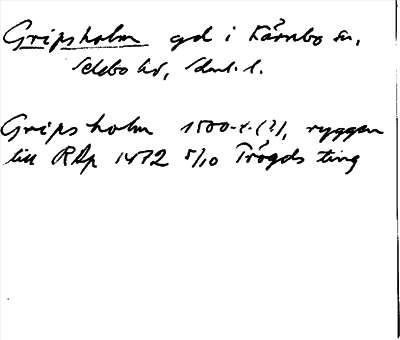 Gripsholm gd i Kärnbo sn,
Selebo hd, Sdml. l.
Gripsholm 1500-t. (?), ryggen
till RAp 1472 5/10 Trögds ting